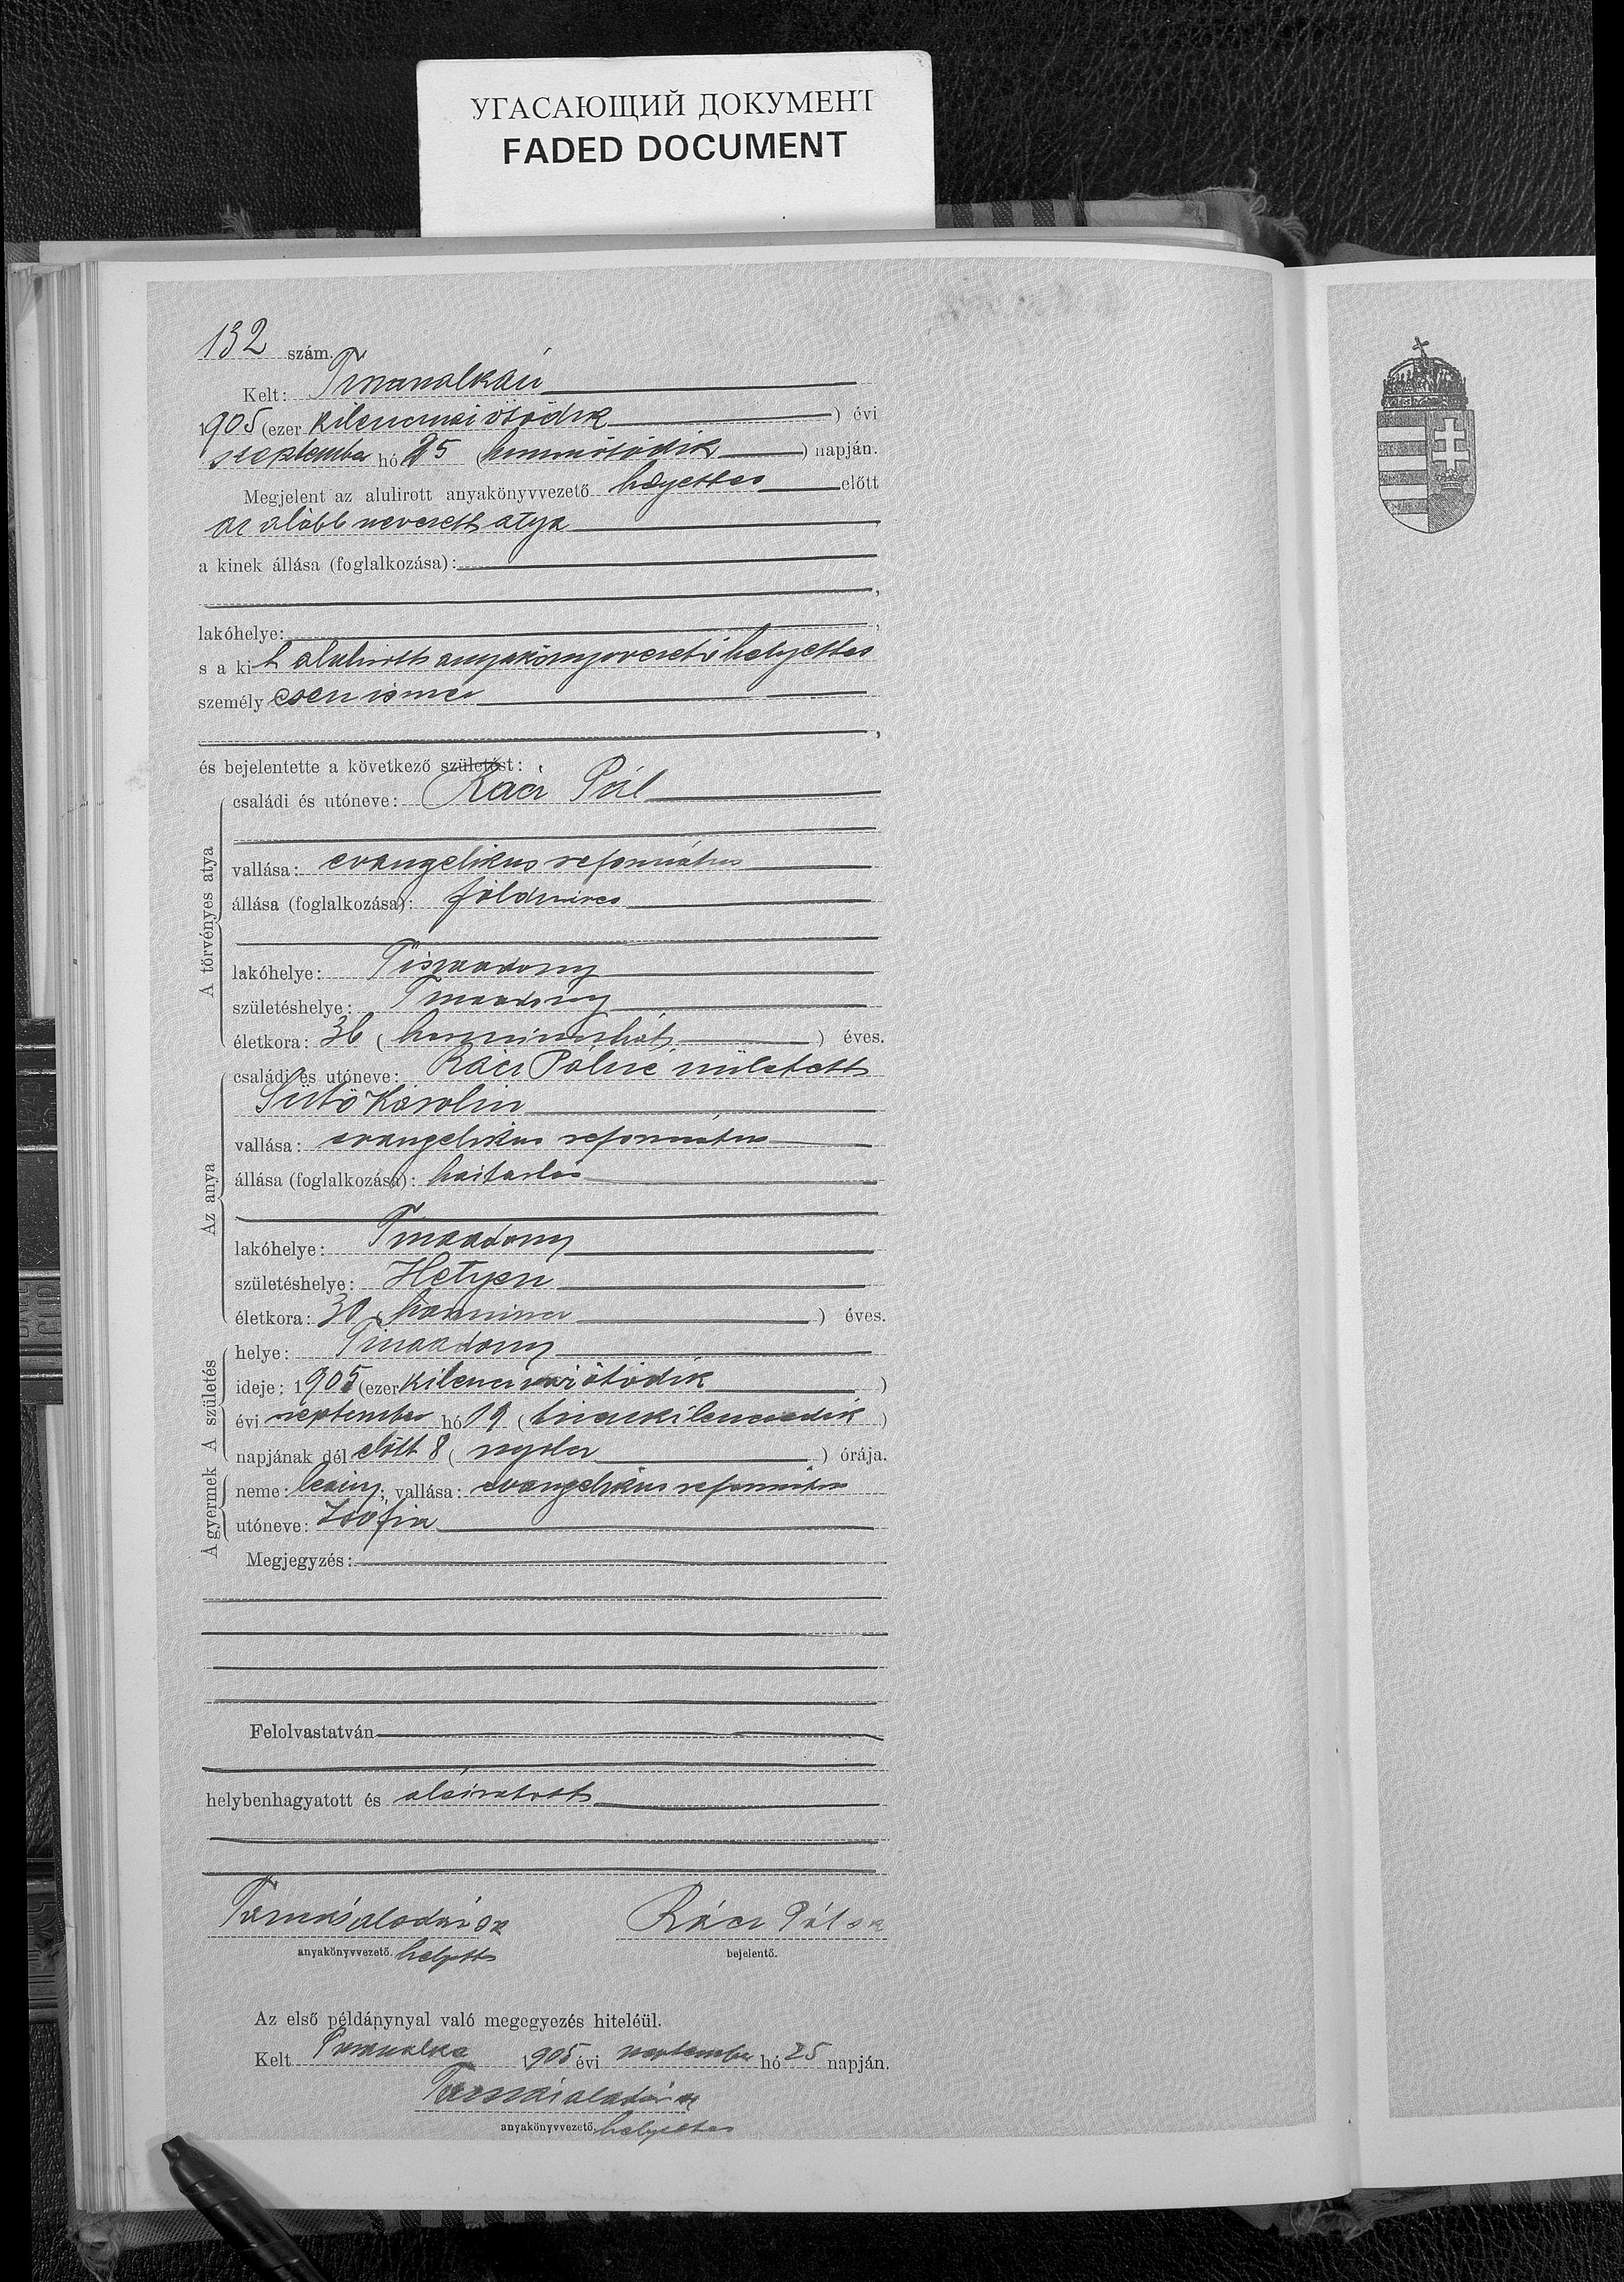 УГАСАЮЩИЙ ДОКУМЕНТ
FADED DOCUMENT
132 szám.
Kelt:
1905 (ezer kilenczszázötödik ) évi
szeptember hó 25 (huszonötödik ) napján.
Megjelent az alulirott anyakönyvvezető helyettes előtt
az alább nevezett atya
a kinek állása (foglalkozása):
lakóhelye:
s a kit alulirott anyakönyvvezető helyettes
személyesen ismer
és bejelentette a következő születést:
A törvényes atya
családi és utóneve: Rácz Pál
vallása: evangelikus református
állása (foglalkozása): földmives
lakóhelye: Tiszaadony
születéshelye: Tiszaadony
életkora: 36 (harminczhat ) éves.
Az anya
családi és utóneve: Rácz Pálné született
Sütő Karolin
vallása: evangelikus református
állása (foglalkozása): háztartás
lakóhelye: Tiszaadony
születéshelye: Hetyen
életkora: 30 (harmincz ) éves.
A születés
helye: Tiszaadony
ideje: 1905 (ezer kilenczszázötödik )
évi szeptember hó 19 (tizenkilenczedik )
napjának dél előtt 8 (nyolcz ) órája.
A gyermek
neme: leány; vallása: evangelikus református
utóneve: Zsófia
Megjegyzés:
Felolvastatván
helybenhagyatott és aláiratott
Rácz Pál sk
anyakönyvvezető. helyettes
bejelentő.
Az első példánynyal való megegyezés hiteléül.
Kelt 1905 évi szeptember hó 25 napján.
anyakönyvvezető helyettes